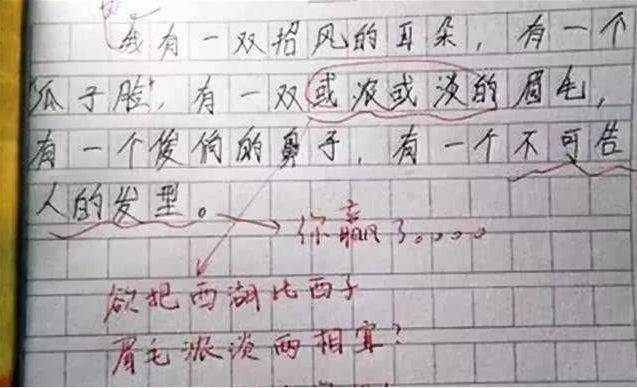 我有一双招风的耳朵，有一个
“瓜子脸”，有一双或浓或淡的眉毛，
有一个俊俏的鼻子，有一个不可告
人的发型。
你赢了。。。。
欲把西湖比西子
眉毛浓淡两相宜？